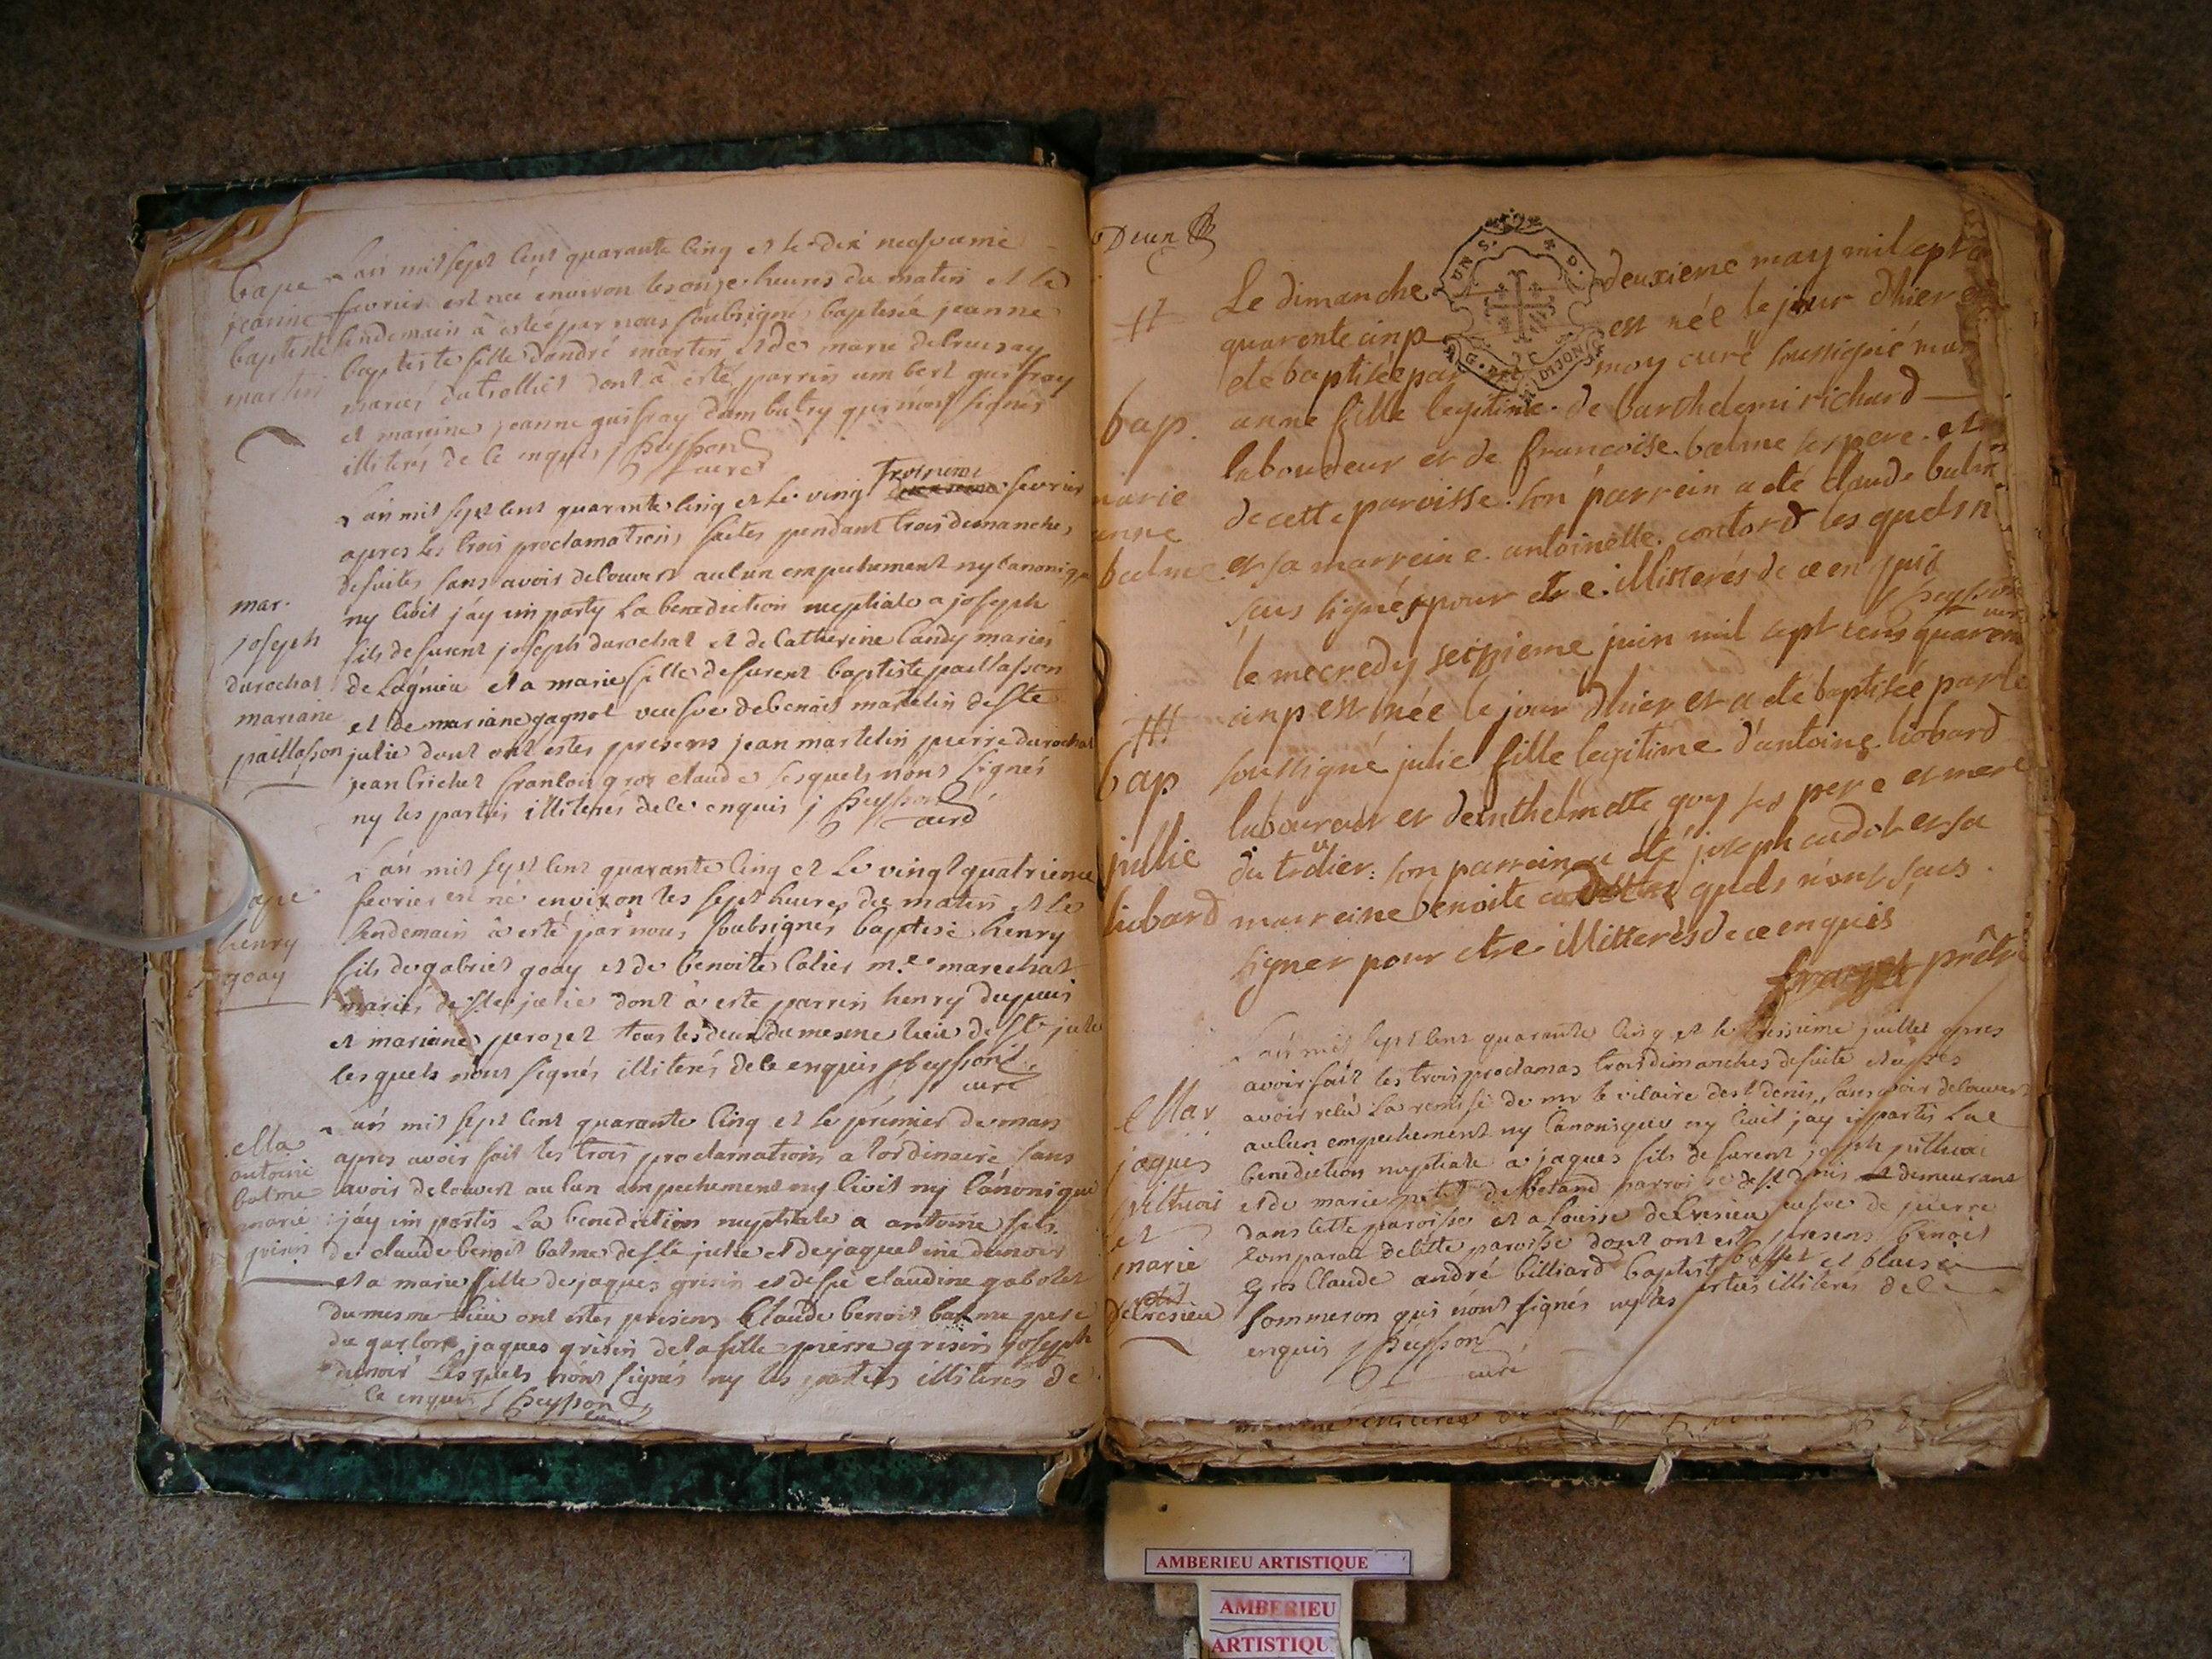 bape
jeanne
baptiste
martin
L'an mil sept cent quarante cinq et le dix neufvieme
fevrier est née environ les onze heures du matin et le
lendemain à estée par nous soubsigné baptisée jeanne
baptiste fille d'andré martin et de marie
mariés du trollier dont à esté parrin umbert guiffray
et mareine jeanne guiffray d'ambutry qui n'ont signés
illiterés de ce enquis j Peysson
curé
mar.
joseph
durochat
mariane
paillasson
L'an mil sept cent quarante cinq et le ving troisieme fevrier
apres les trois proclamations faites pendant trois dimanches
de suites sans avoir decouvert aucun empechement ny canonique
ny civil j'ay imparty la benediction nuptiale a joseph
fils de furent joseph durochat et de Catherine Candy mariés
de Lagnieu et a marie fille de furent baptiste paillasson
et de mariane gagnol veufve de benoit martelin de Ste
julie dont ont estes presens jean martelin pierre durochat
jean Crichet francois gros claude lesquels n'ont signés
ny les parties illiterés de ce enquis j Peysson
curé
bape
henry
goay
L'an mil sept cent quarante cinq et le vingt quatrieme
fevrier est né environ les sept heures du matin et le
lendemain à esté par nous soubsignés baptisé henry
fils de gabriel goay et de benoite Colier m.e marechal
mariés de Ste julie dont à esté parrin henry dupuis
et mariane perozet tous les deux du mesme lieu de Ste julie
lesquels n'ont signés illiterés de ce enquis j Peysson
curé
Mar
antoine
balme
marie
grisin
L'an mil sept cent quarante cinq et le premier de mars
apres avoir fait les trois proclamations a l'ordinaire sans
avoir decouvert aucun empechement ny civil ny canonique
j'ay impartis la benediction nuptiale a antoine fils
de claude benoit balme de Ste julie et de jaqueline dunoir
et a marie fille de jaques grisin et de fue claudine gabolet
du mesme lieu ont estes presens Claude benoit balme pere
du garson jaques grisin de la fille pierre grisin joseph
dunoir lesquels n'ont signés ny les parties illiterés de
ce enquis j Peysson
curé
Deux
UN S. A D.
G. DIJON
Le dimanche deuxieme may mil sept c
quarente cinp est née le jour d'hier et
ete baptisée par moy curé soussigné mar
bap.
marie
anne
balme
anne fille legitime de barthelemi richard
laboureur et de francoise balme ses pere et
de cette paroisse. son parrein a eté claude balm
et sa marreine antoinette contord les quels n
sus signés pour etre illitterés de ce enquis
Peysson
curé
bap
julie
liobard
le mecredy seizieme juin mil sept cens quaren
cinp est née le jour d'hier et a ete baptisée par le
soussigné julie fille legitime d'antoine liobard
laboureur et d'enthelmette goy ses pere et mere
du trolier: son parrein a eté joseph cadot et sa
marreine benoite quels n'ont sus
signer pour etre illitterés de ce enquis
prêtre
Mar
jaques
pithioi
et
marie
petit
de Cresieu
L'an mil sept cent quarante cinq et le juillet apres
avoir fait les trois proclamas trois dimanches de suite et apres
avoir reçu la remise de mr le vicaire de st denis, sans avoir decouvert
aucun empechement ny canonique ny civil j'ay impartis la
benediction nuptiale a jaques fils de furent joseph pithioi
et de marie petit de parroisse de st denis demeurant
dans cette paroisse et a Louise de Cresieu veufve de pierre
Comparat de cette paroisse dont ont esté presens benoit
gros Claude andré billiard baptiste buffet et blaise
sommeron qui n'ont signés ny les parties illiterés de ce
enquis j Peysson
curé
AMBERIEU ARTISTIQUE
AMBERIEU
ARTISTIQU